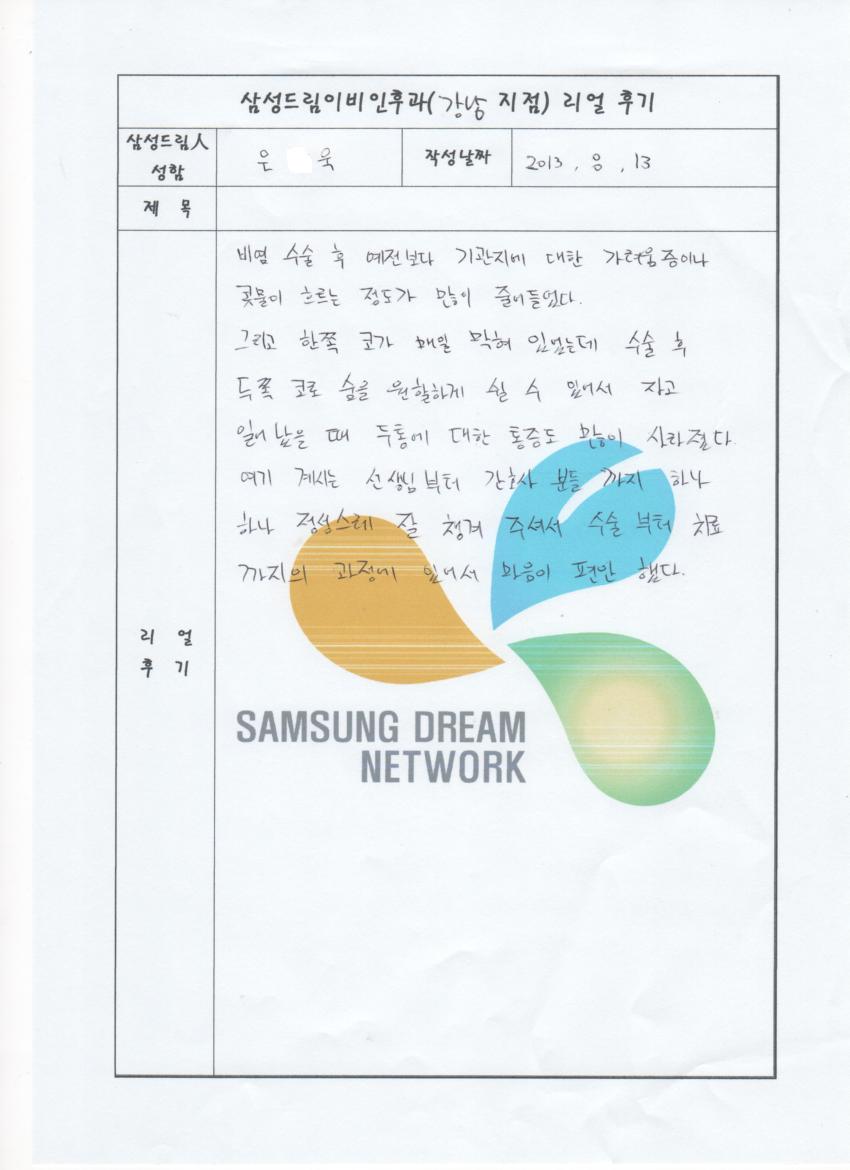 삼성드림이비인후과(강남 지점) 리얼 후기
삼성드림人
성함
은 욱
작성날짜
2013, 8, 13
제 목
비염 수술 후 예전보다 기관지에 대한 가려움증이나
콧물이 흐르는 정도가 많이 줄어들었다.
그리고 한쪽 코가 매일 막혀 있었는데 수술 후
두쪽 코로 숨을 원할하게 쉴 수 있어서 자고
일어 났을 때 두통에 대한 통증도 많이 사라졌다.
여기 계시는 선생님부터 간호사 분들 까지 하나
하나 정성스레 잘 챙겨 주셔서 수술 부터 치료
까지의 과정에 있어서 마음이 편안 했다.
리 얼
후 기
SAMSUNG DREAM
NETWORK